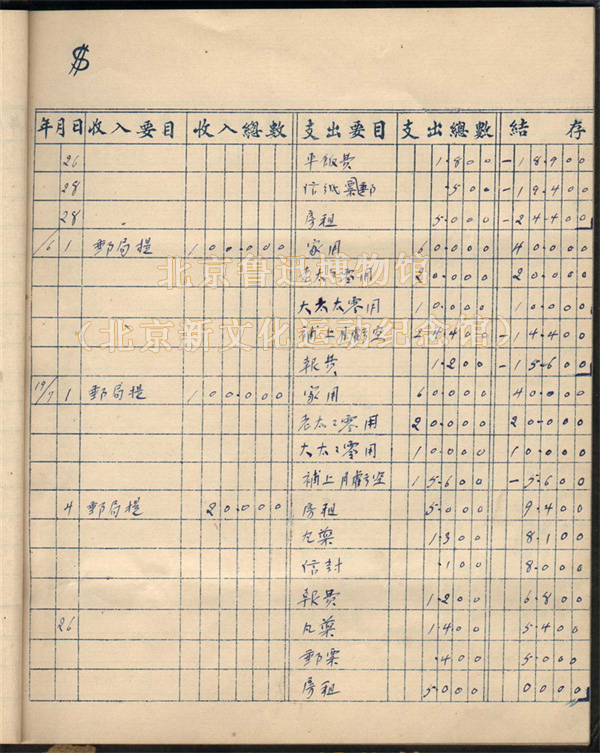 $
年月日 收入要目 收入總數 支出要目 支出總數 結存
26 平報費 1.800 -18.900
28 信紙 郵 .500 -19.400
28 房租 5.000 -24.400
/6 1 郵局提 100.000 家用 60.000 40.000
老太太零用 20.000 20.000
大太太零用 10.000 10.000
補上月虧空 24.400 -14.400
報費 1.200 -15.600
19/7 1 郵局提 100.000 家用 60.000 40.000
老太〻零用 20.000 20.000
大太〻零用 10.000 10.000
補上月虧空 15.600 -5.600
4 郵局提 20.000 房租 5.000 9.400
丸藥 1.300 8.100
信封 .100 8.000
報費 1.200 6.800
26 丸藥 1.400 5.400
郵票 .400 5.000
房租 5.000 0000
北京鲁迅博物馆
（北京新文化运动纪念馆）